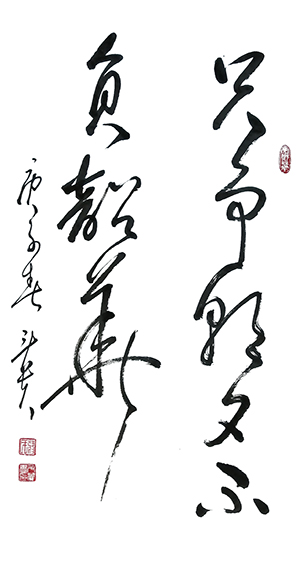 只争朝夕不
负韶华
庚子春